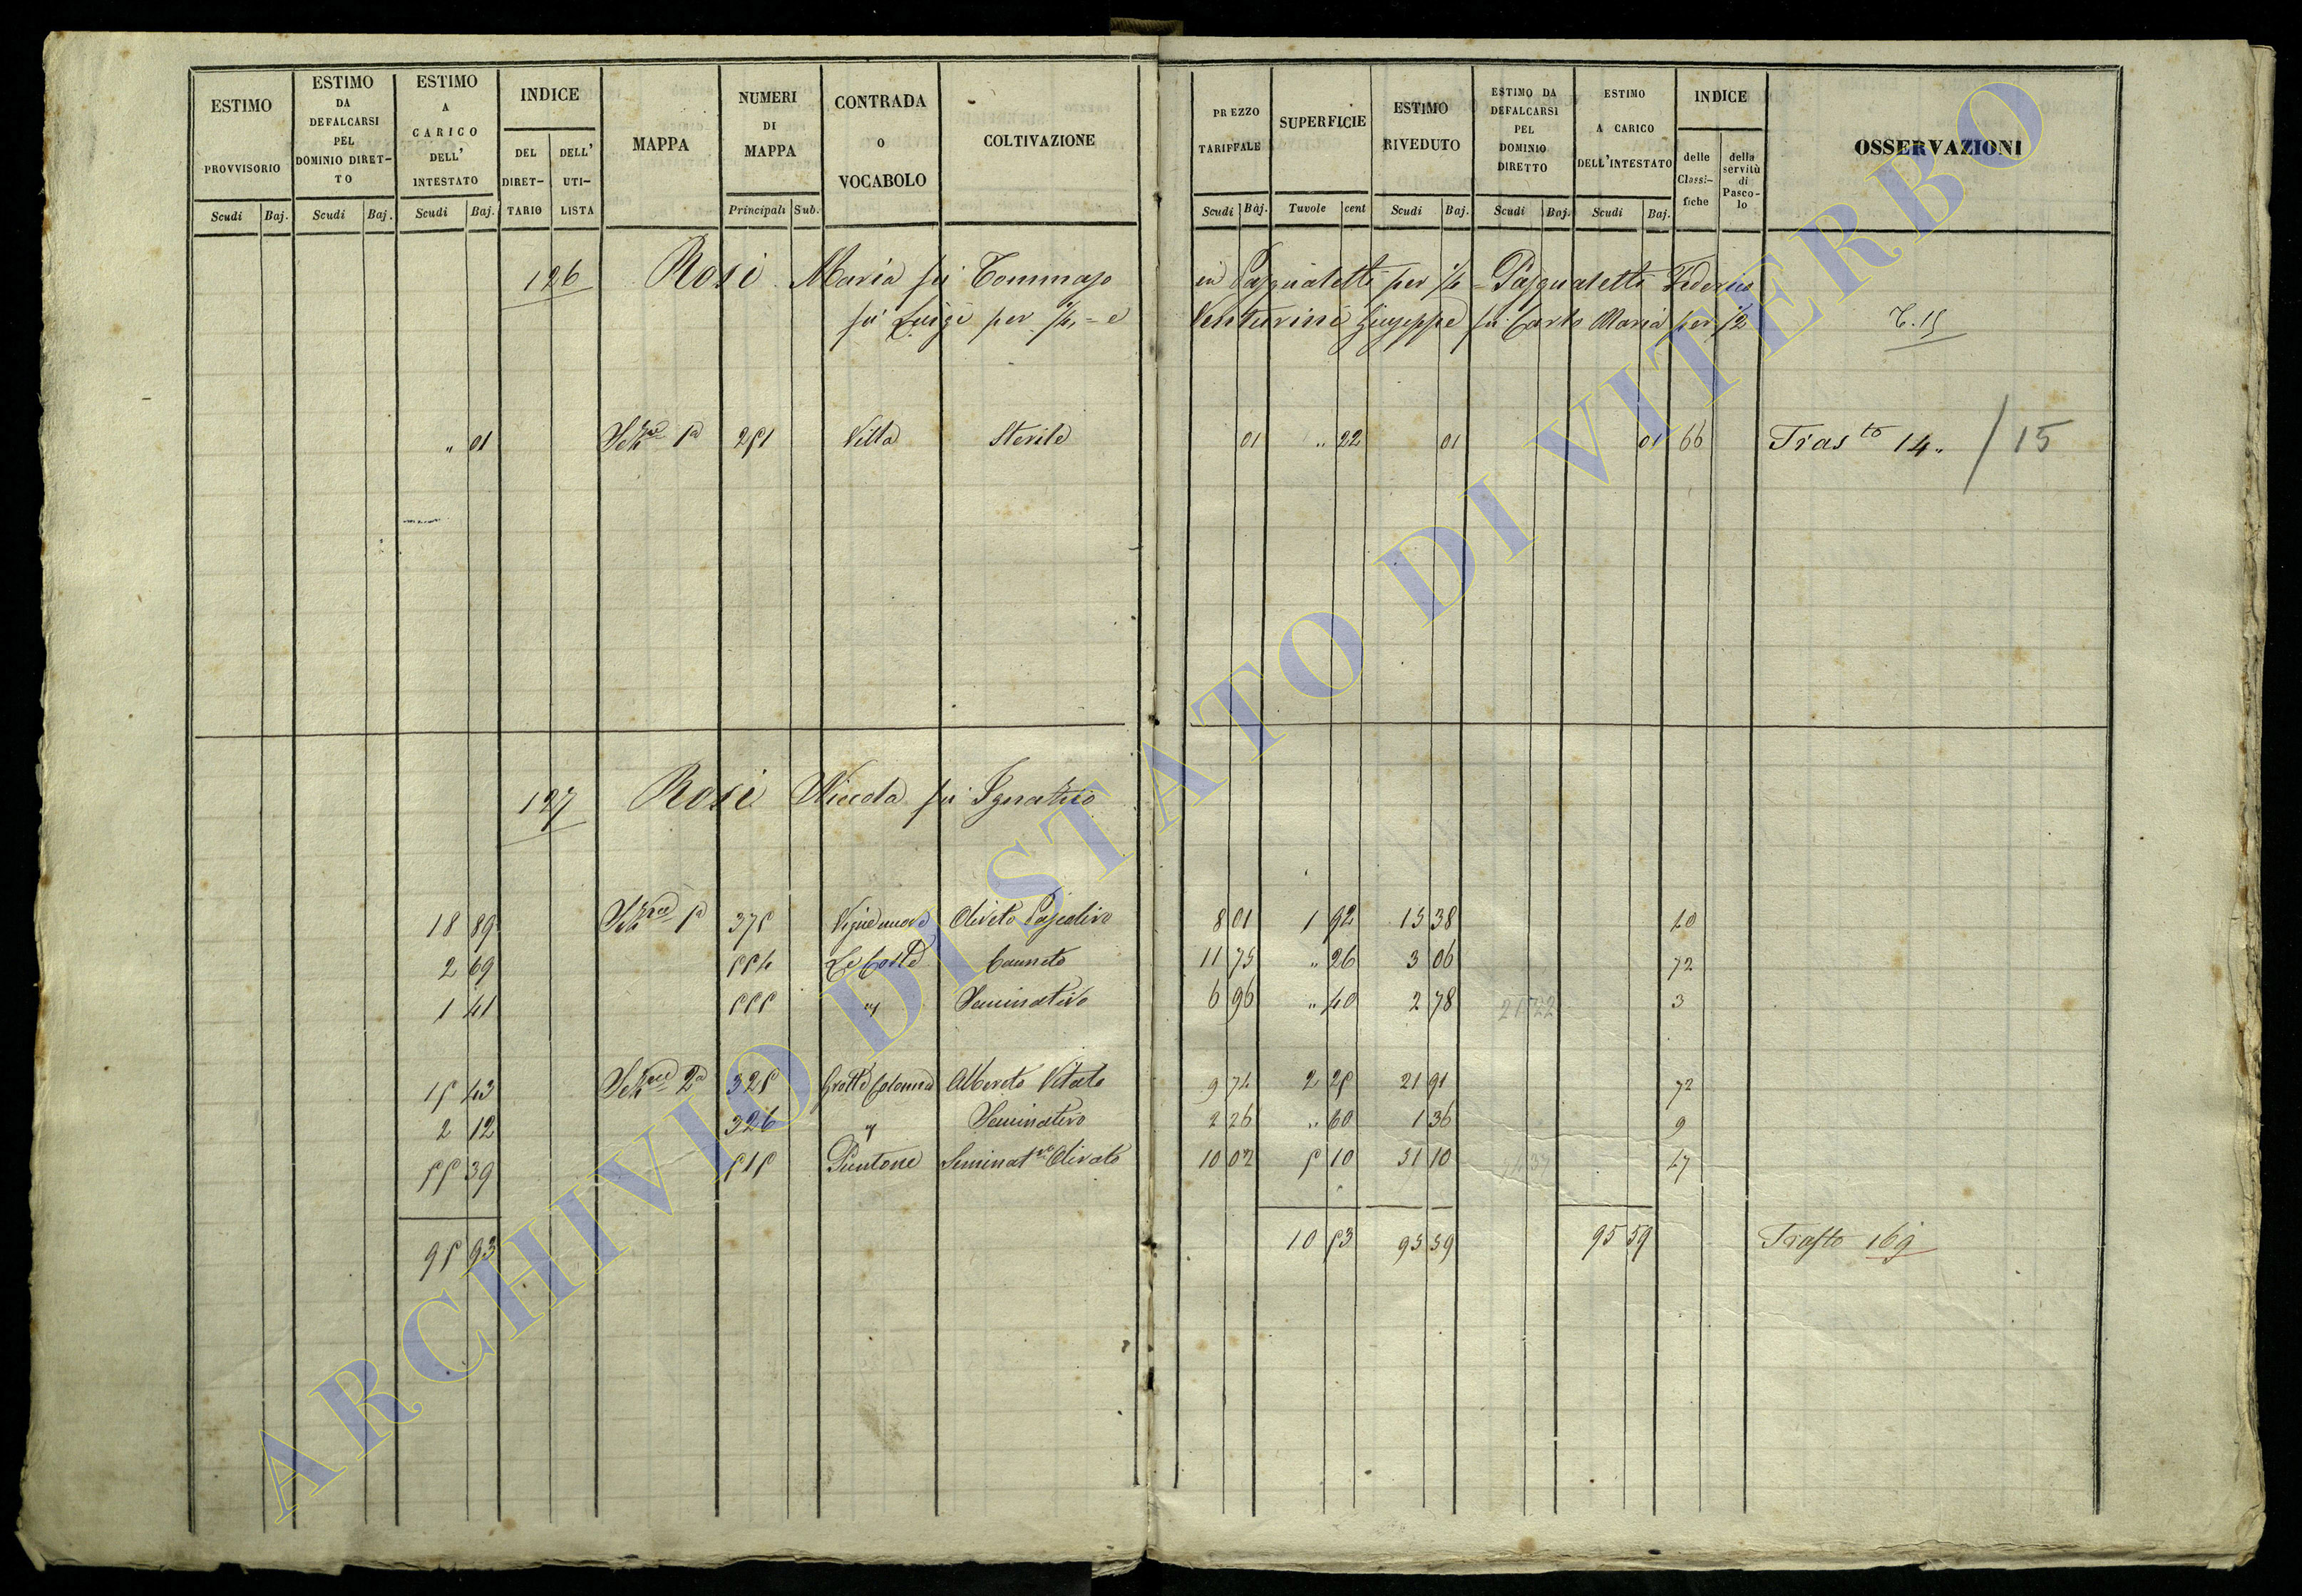 ESTIMO
PROVVISORIO
Scudi Baj.
ESTIMO
DA
DEFALCARSI
PEL
DOMINIO DIRET-
TO
Scudi Baj.
ESTIMO
A
CARICO
DELL'
INTESTATO
Scudi Baj.
INDICE
DEL DIRET- TARIO
DELL' UTI- LISTA
MAPPA
NUMERI
DI
MAPPA
Principali Sub.
CONTRADA
O
VOCABOLO
COLTIVAZIONE
PREZZO
TARIFFALE
Scudi Baj.
SUPERFICIE
Tavole cent
ESTIMO
RIVEDUTO
Scudi Baj.
ESTIMO DA
DEFALCARSI
PEL
DOMINIO
DIRETTO
Scudi Baj.
ESTIMO
A CARICO
DELL'INTESTATO
Scudi Baj.
INDICE
delle Classi- fiche
della servitù di Pasco- lo
OSSERVAZIONI
126 Rosi Maria fu Tommaso in Pasqualetti per 1/4 = Pasqualetti Federico
fu Luigi per 1/4, = e Venturini Giuseppe fu Carlo Maria per 1/2 T. 15
" 01 Sezne 1a 251 Villa Sterile 01 " 22 01 01 66 Trasto 14 " / 15
127 Rosi Niccola fu Ignazio
18 89 Sezne 1a 375 Vigne nuove Oliveto Pascolivo 8 01 1 92 15 38 40
2 69 554 Le Coste Canneto 11 75 " 26 3 06 72
1 41 555 " Seminativo 6 96 " 40 2 78 21 22 3
15 43 Sezne 2a 325 Grotte Colonna Alberato Vitato 9 74 2 25 21 91 72
2 12 326 " Seminativo 2 26 " 60 1 36 9
55 39 515 Puntone Seminatvo Olivato 10 02 5 10 51 10 74 37 47
95 93 10 53 95 59 95 59 Trasto 169
ARCHIVIO DI STATO DI VITERBO